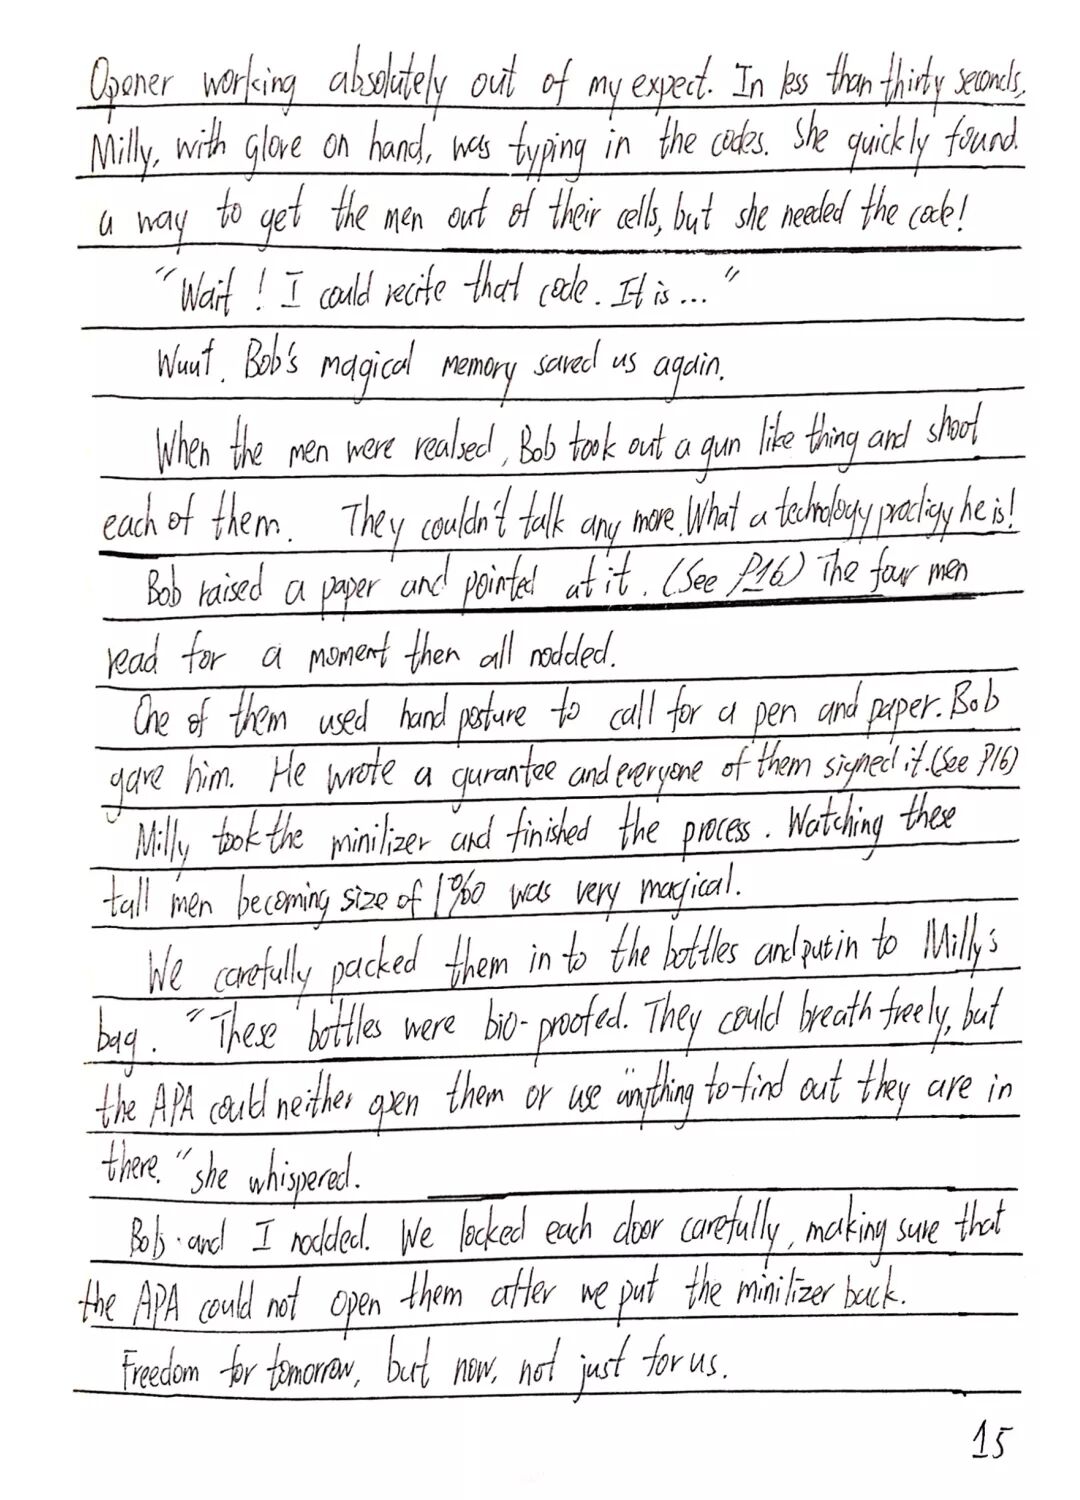 Opener working absolutely out of my expect. In less than thirty seconds,
Milly, with glove on hand, was typing in the codes. She quickly found
a way to get the men out of their cells, but she needed the code!
"Wait! I could recite that code. It is..."
Wuut. Bob's magical memory saved us again.
When the men were realsed, Bob took out a gun like thing and shoot
each of them. They couldn't talk any more. What a technology prodigy he is!
Bob raised a paper and pointed at it. (See P16) The four men
read for a moment then all nodded.
One of them used hand posture to call for a pen and paper. Bob
gave him. He wrote a gurantee and everyone of them signed it. (See P16)
Milly took the minilizer and finished the process. Watching these
tall men becoming size of 1% was very magical.
We carefully packed them in to the bottles and put in to Milly's
bag. "These bottles were bio-proofed. They could breath freely, but
the APA could neither open them or use anything to find out they are in
there." she whispered.
Bob and I nodded. We locked each door carefully, making sure that
the APA could not open them after we put the minilizer back.
Freedom for tomorrow, but now, not just for us.
15